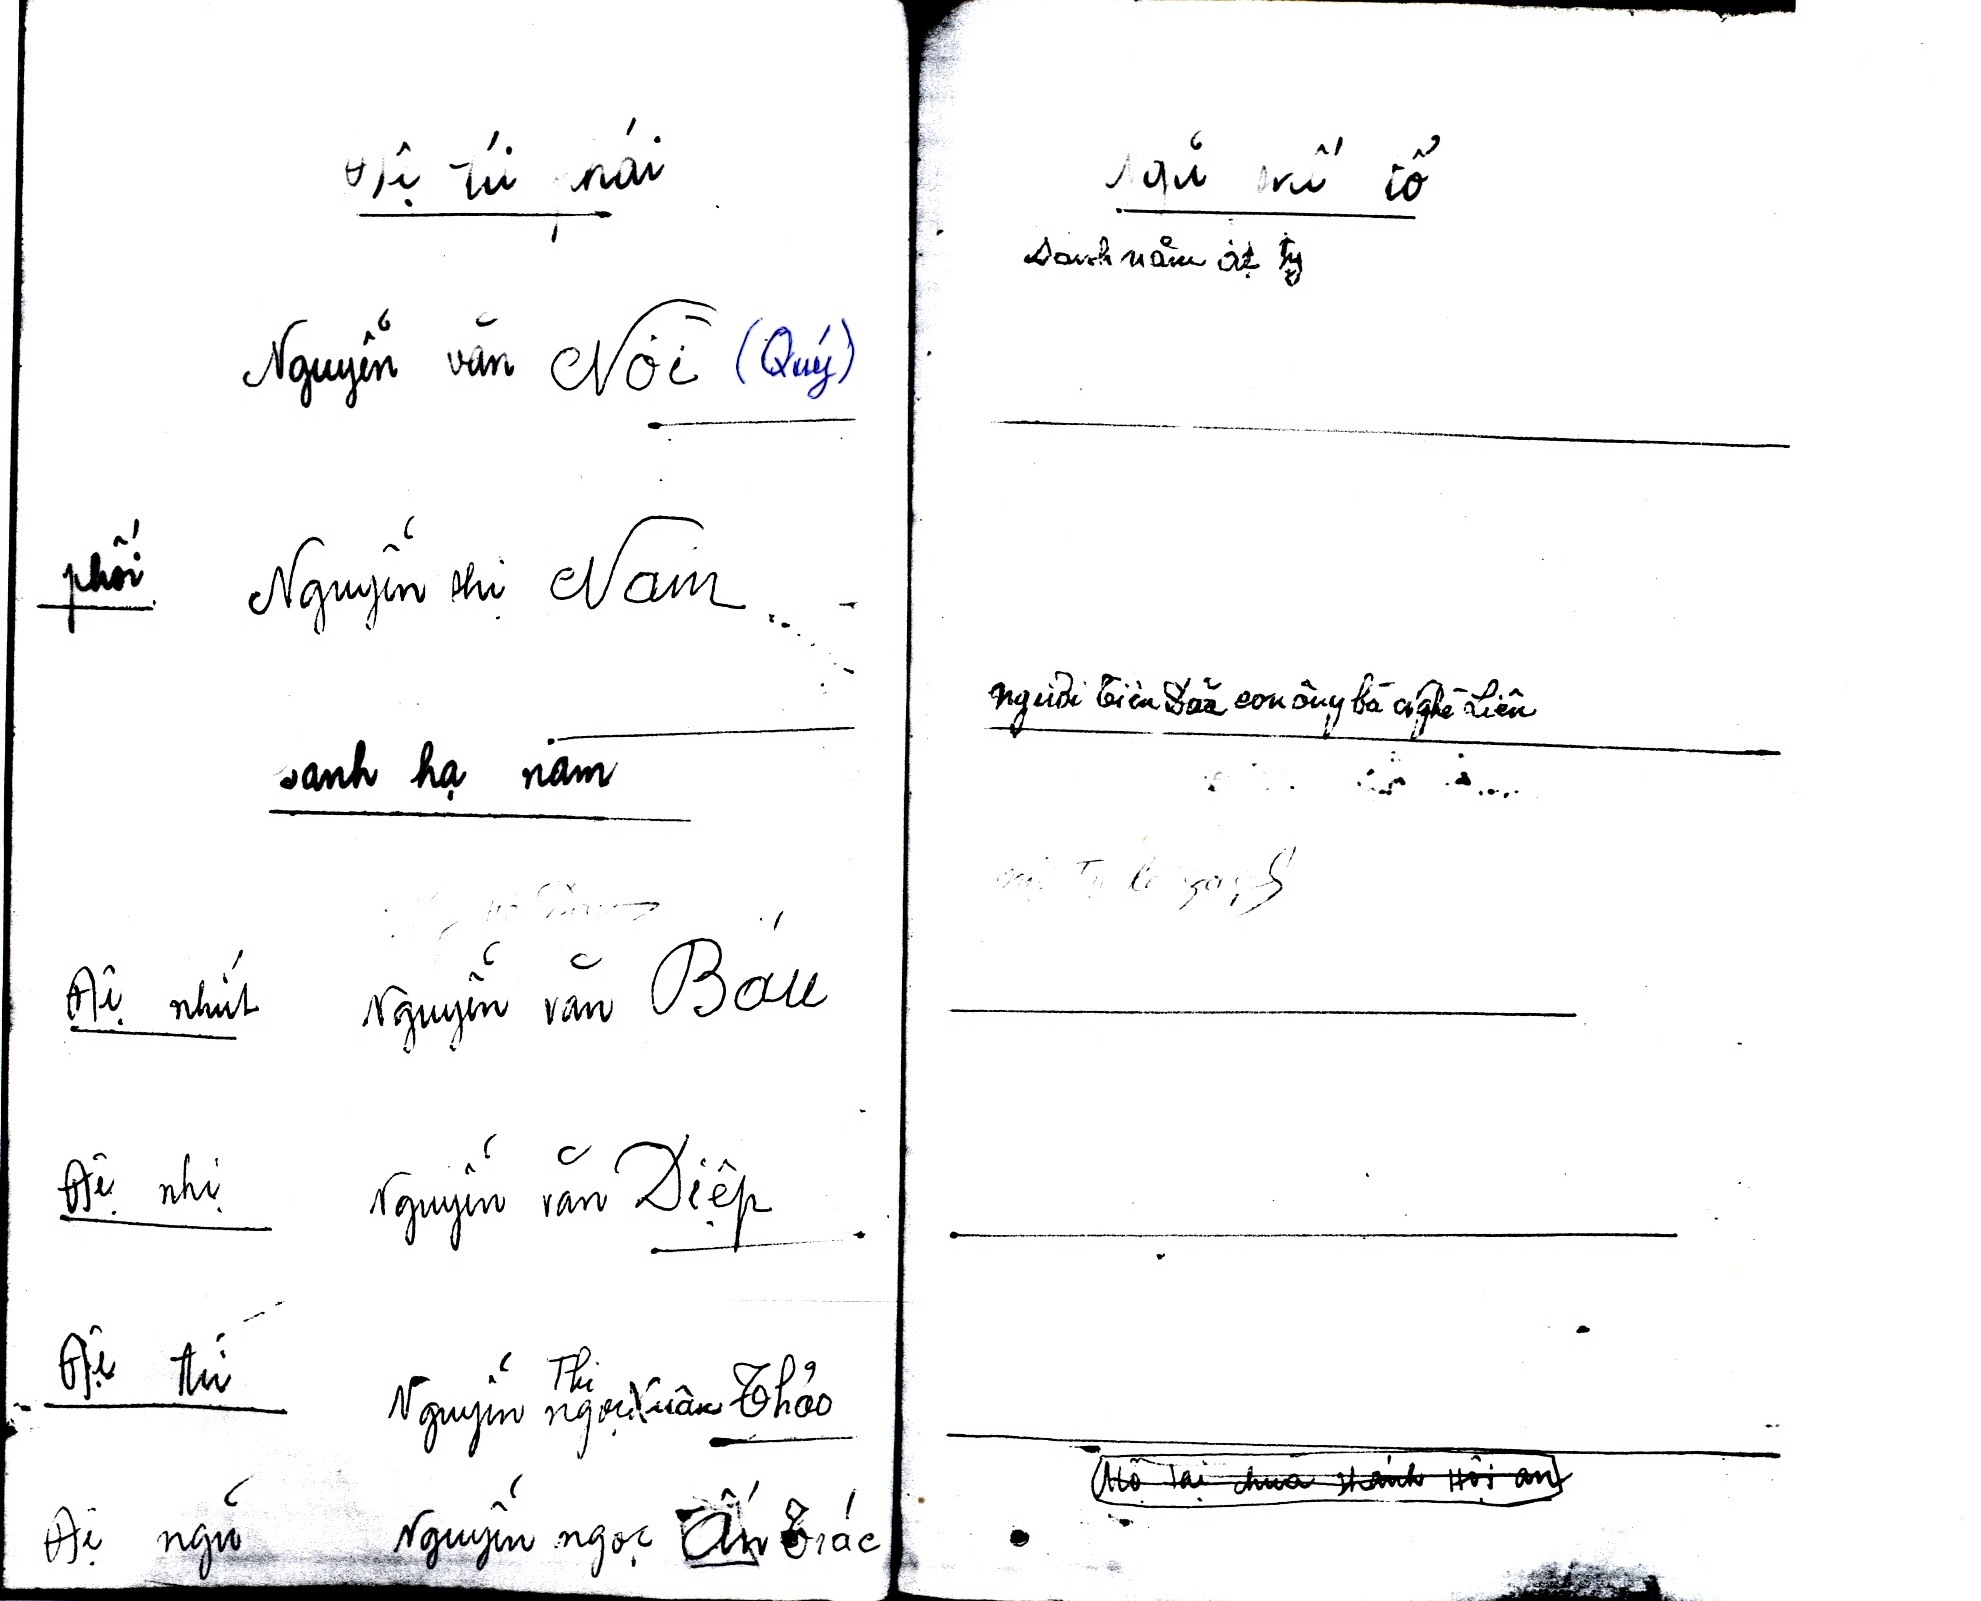 Đệ tứ phái
Nguyễn văn Nòi (Quý)
phối Nguyễn thị Nam
sanh hạ nam
Đệ nhứt Nguyễn văn Báu
Đệ nhị Nguyễn văn Diệp
Đệ tứ Nguyễn Thị ngọc Xuân Thảo
Đệ ngũ Nguyễn ngọc Ấn Trác
Ngũ thế tổ
Sanh năm ất tỵ
người con ông bà nghè Liên
Mộ tại chùa Khánh Hội an